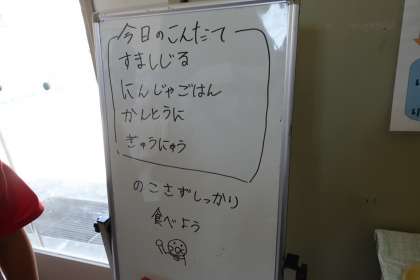 今日のこんだて
すましじる
にんじゃごはん
かしとうに
ぎゅうにゅう
のこさずしっかり
食べよう